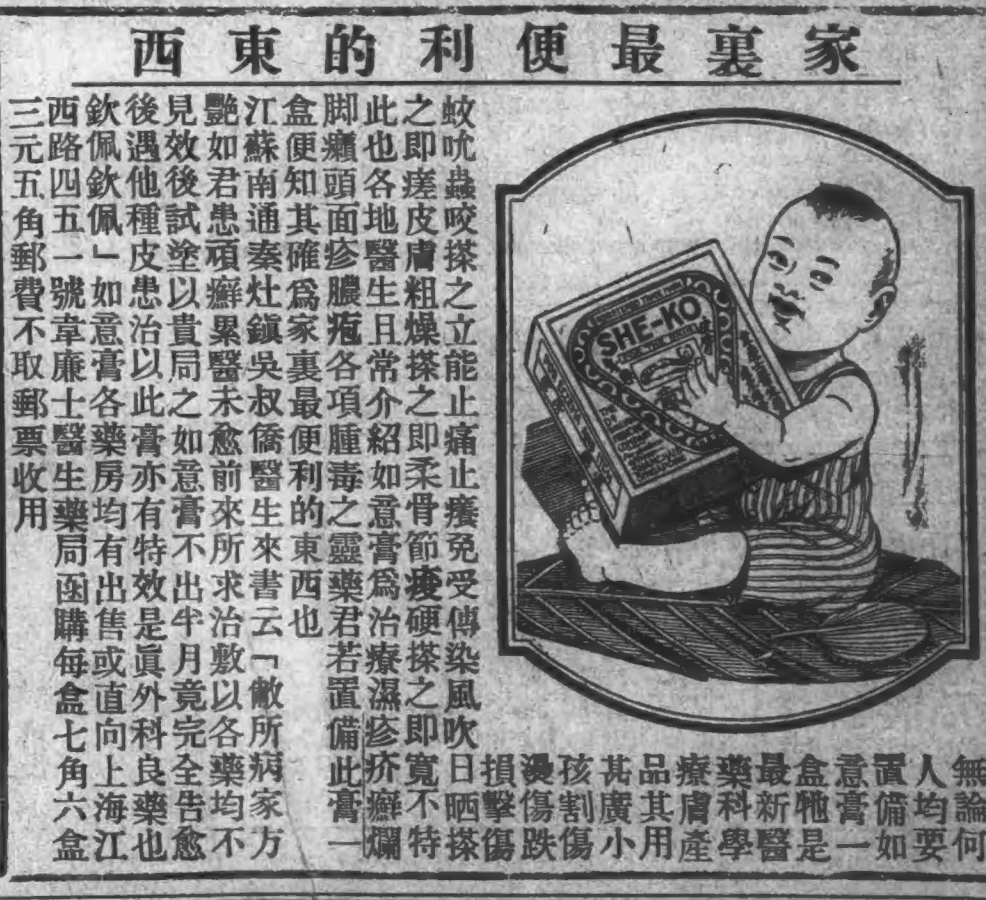 家裏最便利的東西
SHE-KO
無論何
人均要
置備如
意膏一
盒牠是
最新醫
藥科學
療膚產
品其用
甚廣小
孩割傷
燙傷跌
損擊傷
蚊吮蟲咬搽之立能止痛止癢免受傳染風吹日晒搽
之即瘥皮膚粗燥搽之即柔骨節痠硬搽之即寬不特
此也各地醫生且常介紹如意膏爲治療濕疹疥癬爛
脚癩頭面疹膿疱各項腫毒之靈藥君若置備此膏一
盒便知其確爲家裏最便利的東西也
江蘇南通秦灶鎮吳叔僑醫生來書云「敝所病家方
艷如君患頑癬累醫未愈前來所求治敷以各藥均不
見效後試塗以貴局之如意膏不出半月竟完全告愈
後遇他種皮患治以此膏亦有特效是眞外科良藥也
欽佩欽佩」如意膏各藥房均有出售或直向上海江
西路四五一號韋廉士醫生藥局函購每盒七角六盒
三元五角郵費不取郵票收用